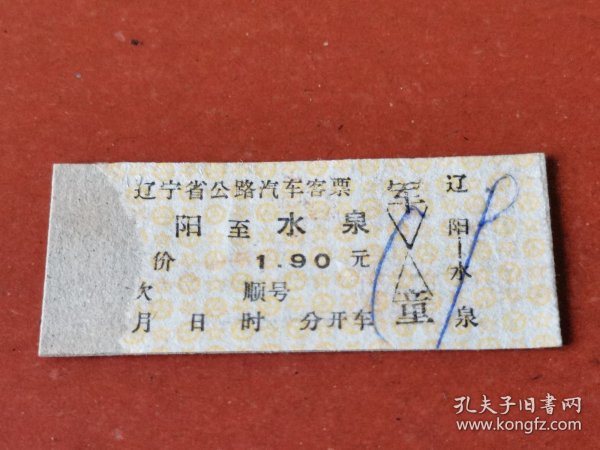 辽宁省公路汽车客票
阳至水泉
价 1.90元
欠 顺号
月 日 时 分开车
军
童
辽阳—水泉
孔夫子旧书网
www.kongfz.com